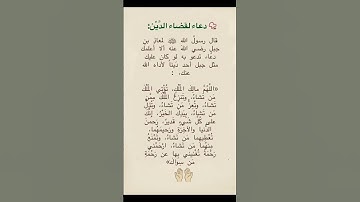 دعاء لقضاء الدَّيْن:
قال رسولُ الله ﷺ لمعاذِ بنِ
جبلٍ رضي الله عنه ألا أعلمك
دعاءً تدعو به لو كان عليك
مثلُ جبلِ أحدٍ دينًا لأداه الله
عنك.
«اللَّهُمَّ مالِكَ المُلْكِ، تُؤْتِي المُلْكَ
مَن تَشاءُ، وتَنزِعُ المُلْكَ مِمَّن
تَشاءُ، وتُعِزُّ مَن تَشاءُ، وتُذِلُّ
مَن تَشاءُ، بِيَدِكَ الخَيْرُ، إنَّكَ
على كُلِّ شَيْءٍ قَديرٌ، رَحمنَ
الدُّنيا والآخِرَةِ ورَحِيمَهُما،
تُعْطِيهِما مَن تَشاءُ، وتَمْنَعُ
مِنْهُما مَن تَشاءُ، ارْحَمْنِي
رَحْمَةً تُغْنِينِي بِها عن رَحْمَةِ
مَن سِواكَ»